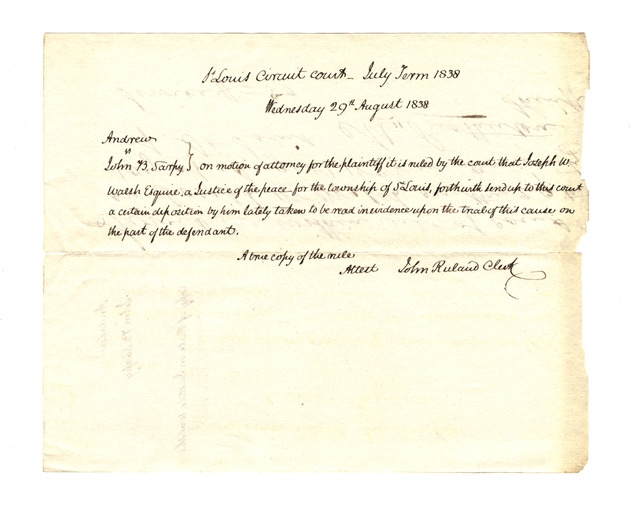 St Louis Circuit court - July Term 1838
Wednesday 29th August 1838
Andrew
vs
John B. Sarpy } on motion of attorney for the plaintiff it is ruled by the court that Joseph W
Walsh Esquire, a Justice of the peace - for the township of St Louis, forthwith send up to this court
a certain deposition by him lately taken to be read in evidence upon the trial of this cause on
the part of the defendant.
A true copy of the rule
Attest John Ruland Clerk